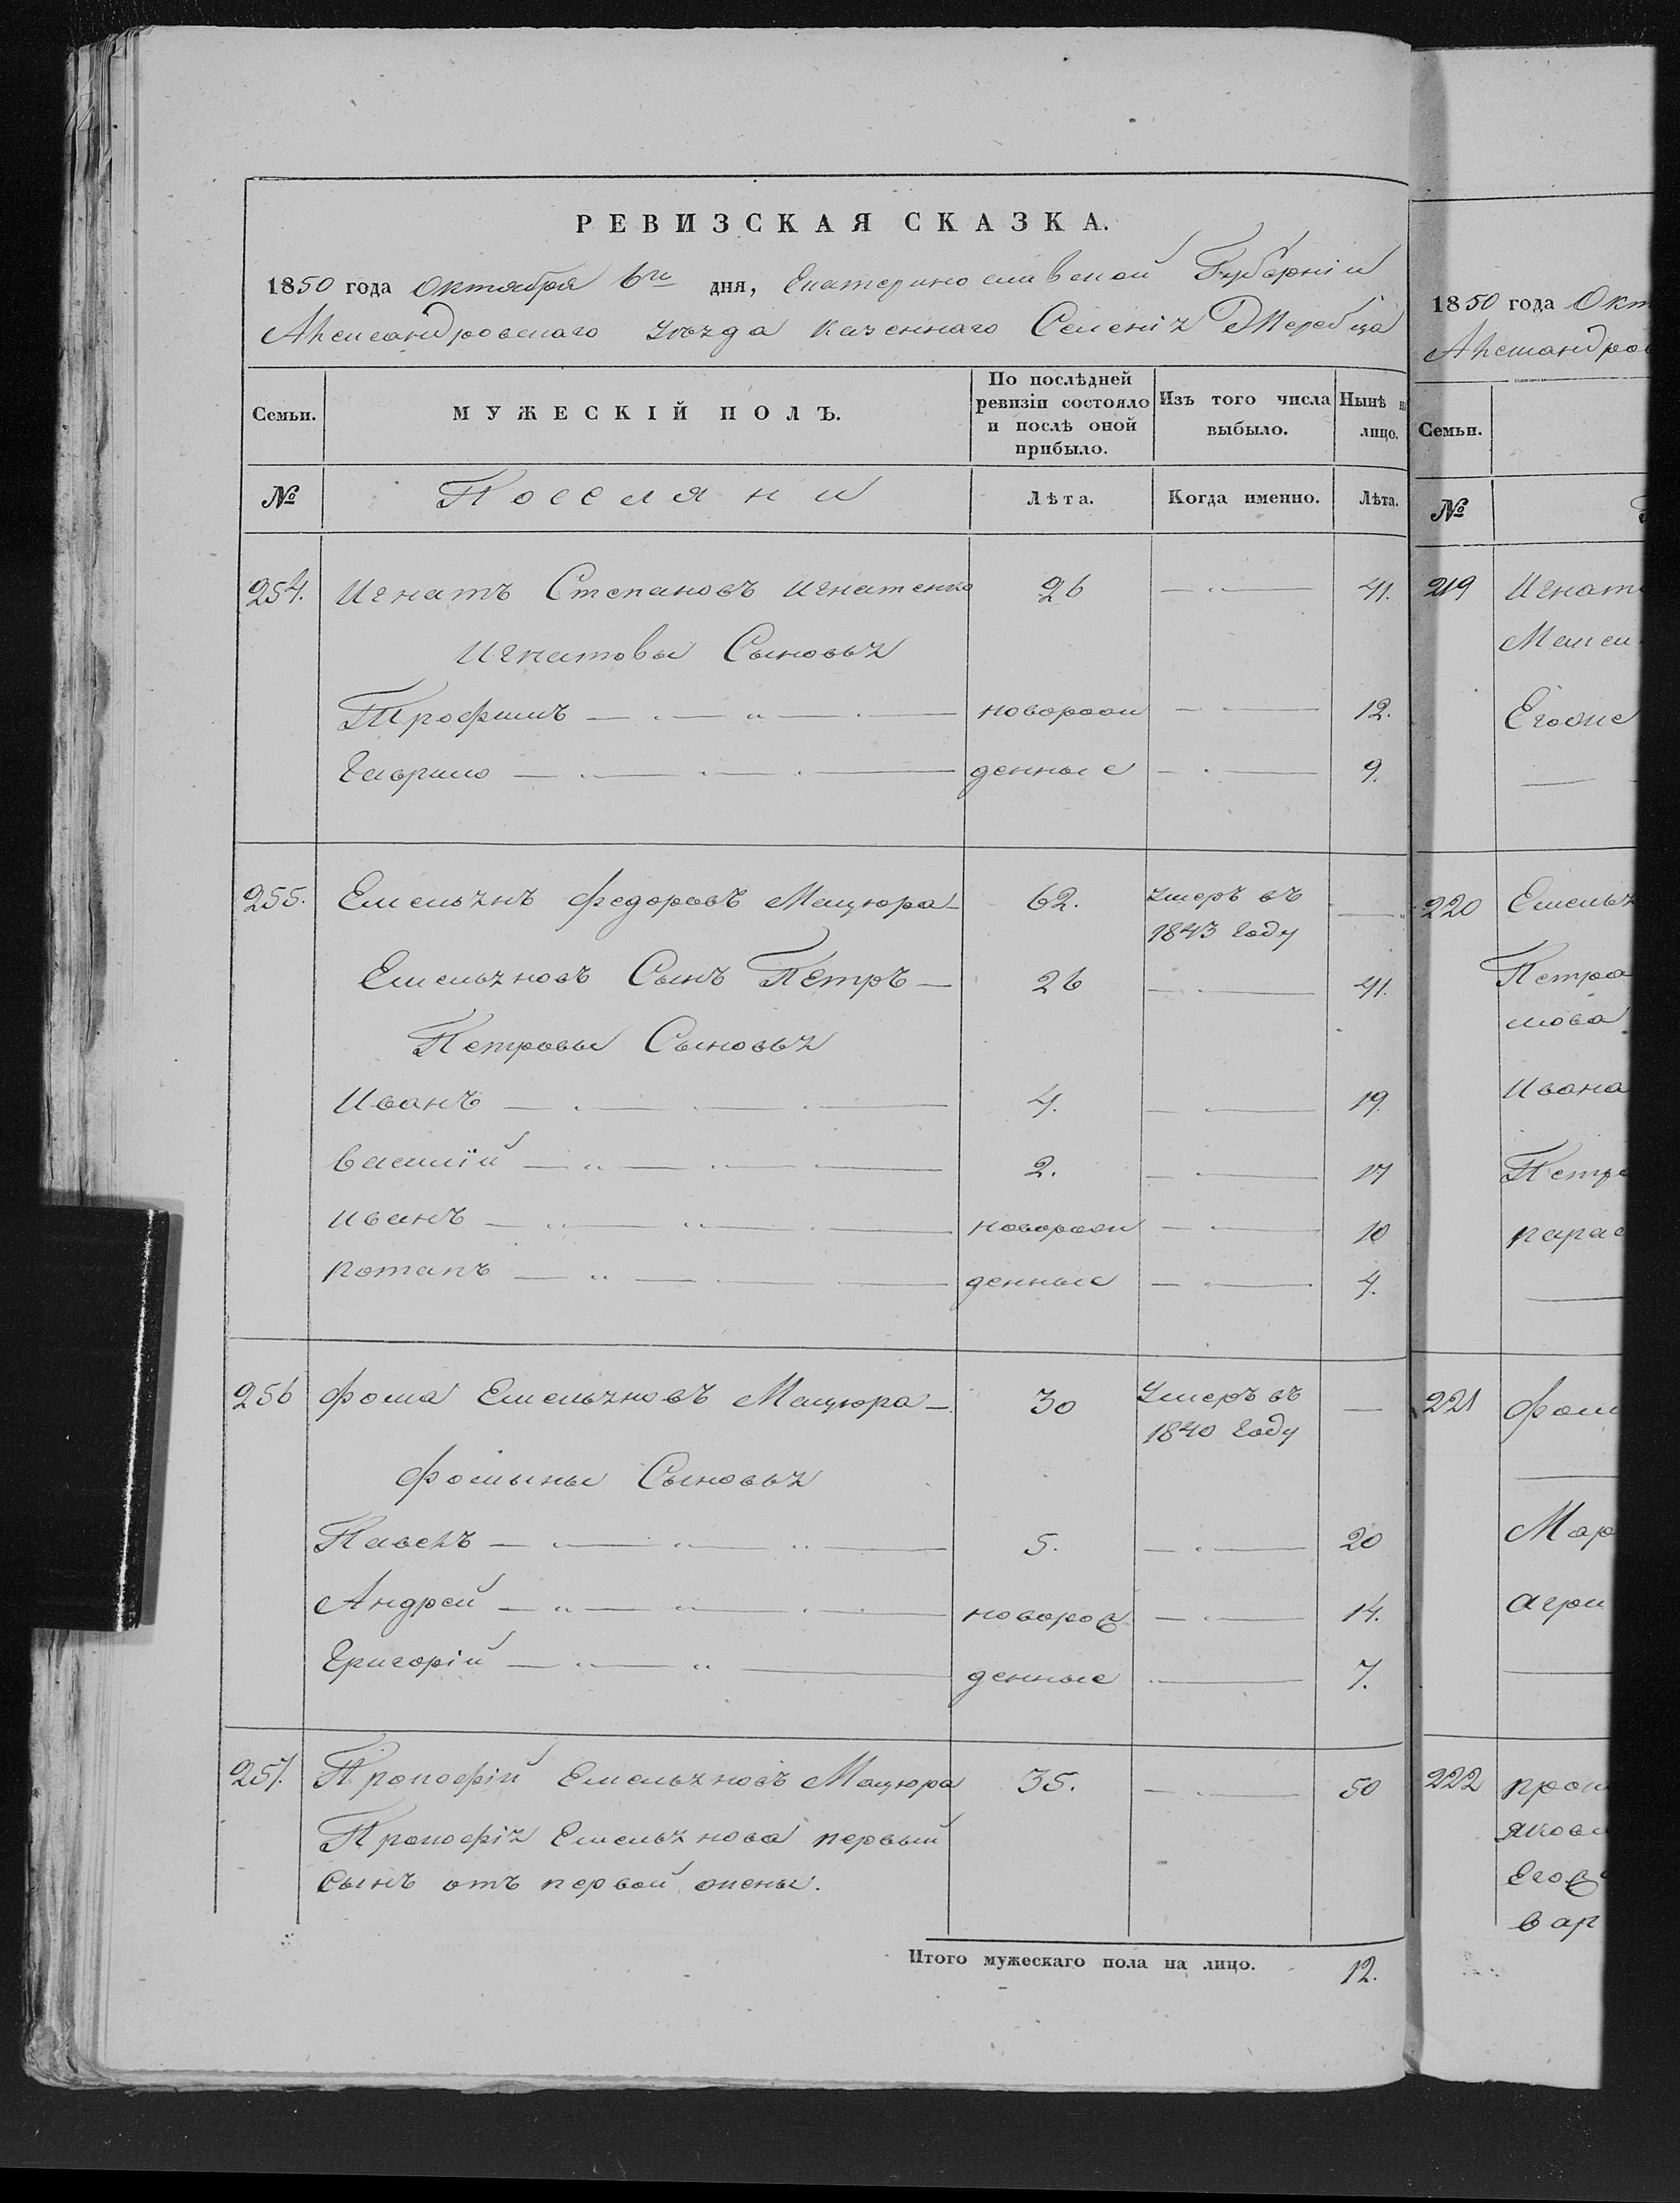 РЕВИЗСКАЯ СКАЗКА.
1850 года Октября 6го дня, Екатеринославской Губерніи
Александровскаго уѣзда казеннаго Селенія Жеребца
Семьи. МУЖЕСКІЙ ПОЛЪ. По послѣдней ревизіи состояло и послѣ оной прибыло. Изъ того числа выбыло. Нынѣ на лицо.
№ Поселяни Лѣта. Когда именно. Лѣта.
254. Игнатъ Степановъ Игнатенко 26 41.
Игнатовы Сыновья
Трофимъ новорож 12.
Гаврило денные 9.
255. Емельянъ Федоровъ Мацюра 62. Умеръ въ 1843 году
Емельяновъ Сынъ Петръ 26 41.
Петровы Сыновья
Иванъ 4. 19.
Василій 2. 17
Иванъ новорож 10
Потапъ денные 4.
256 Фома Емельяновъ Мацюра 30 Умеръ въ 1840 году
Фомины Сыновья
Павелъ 5. 20
Андрей новорож 14.
Григорій денные 7.
257. Прокофій Емельяновъ Мацюра 35. 50
Прокофія Емельянова первый
Сынъ отъ первой жены.
Итого мужескаго пола на лицо. 12.
1850 года Окт
Александров
Семьи.
№
219 Игнат
Егоже
220 Емелья
Петра
Ивана
Петр
парас
221 Фом
Мар
агри
222 прок
яковл
Егож
вар